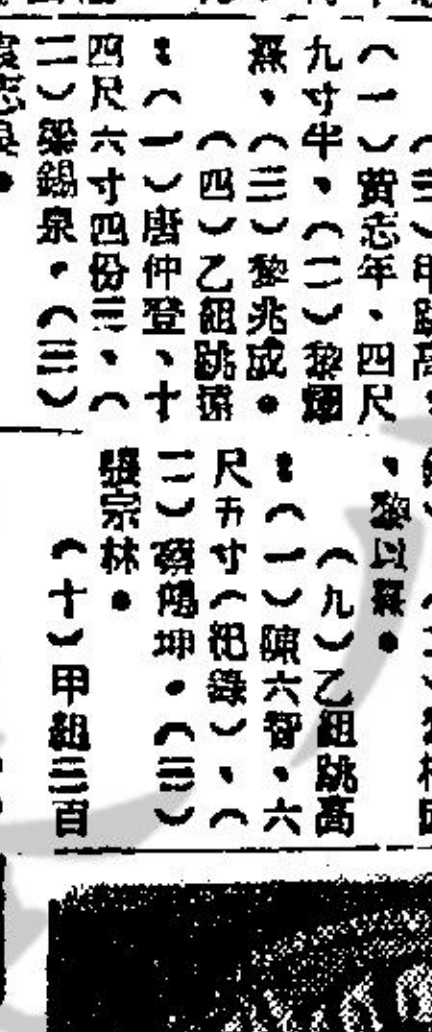 （三）甲組跳高：
（一）黃志年、四尺
九寸半、（二）黎
蘇、（三）黎兆成。
（四）乙組跳遠
：（一）唐仲登、十
四尺六寸四份三、（
二）梁錫泉。（三）
志良。
、黎以蘇。
（九）乙組跳高
：（一）陳六智、六
尺五寸（紀錄）、（
二）蔡鴻坤。（三）
張宗林。
（十）甲組三百